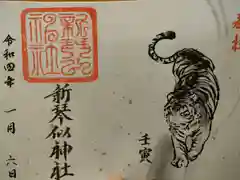 奉拝
壬寅
新琴似神社
新琴似神社
令和四年 一月 六日